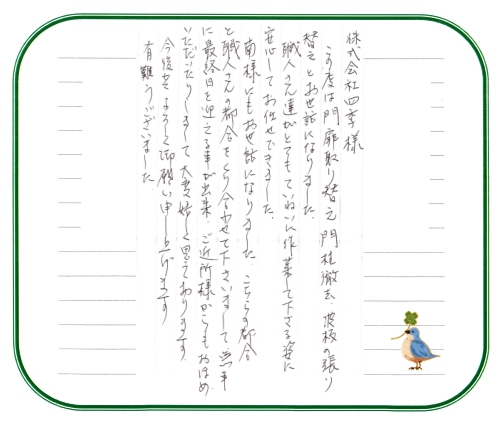 株式会社四季様
この度は門扉取り替え 門柱撤去、波板の張り
替えとお世話になりました。
職人さん達がとてもていねいに作業して下さる姿に
安心してお任せできました。
南様にもお世話になりました こちらの都合
と職人さんの都合をくり合わせて下さいまして無事
に最終日を迎える事が出来、ご近所様からもおほめ
いただいたりしまして大変嬉しく思っております
今後共よろしく御願い申し上げます
有難うございました